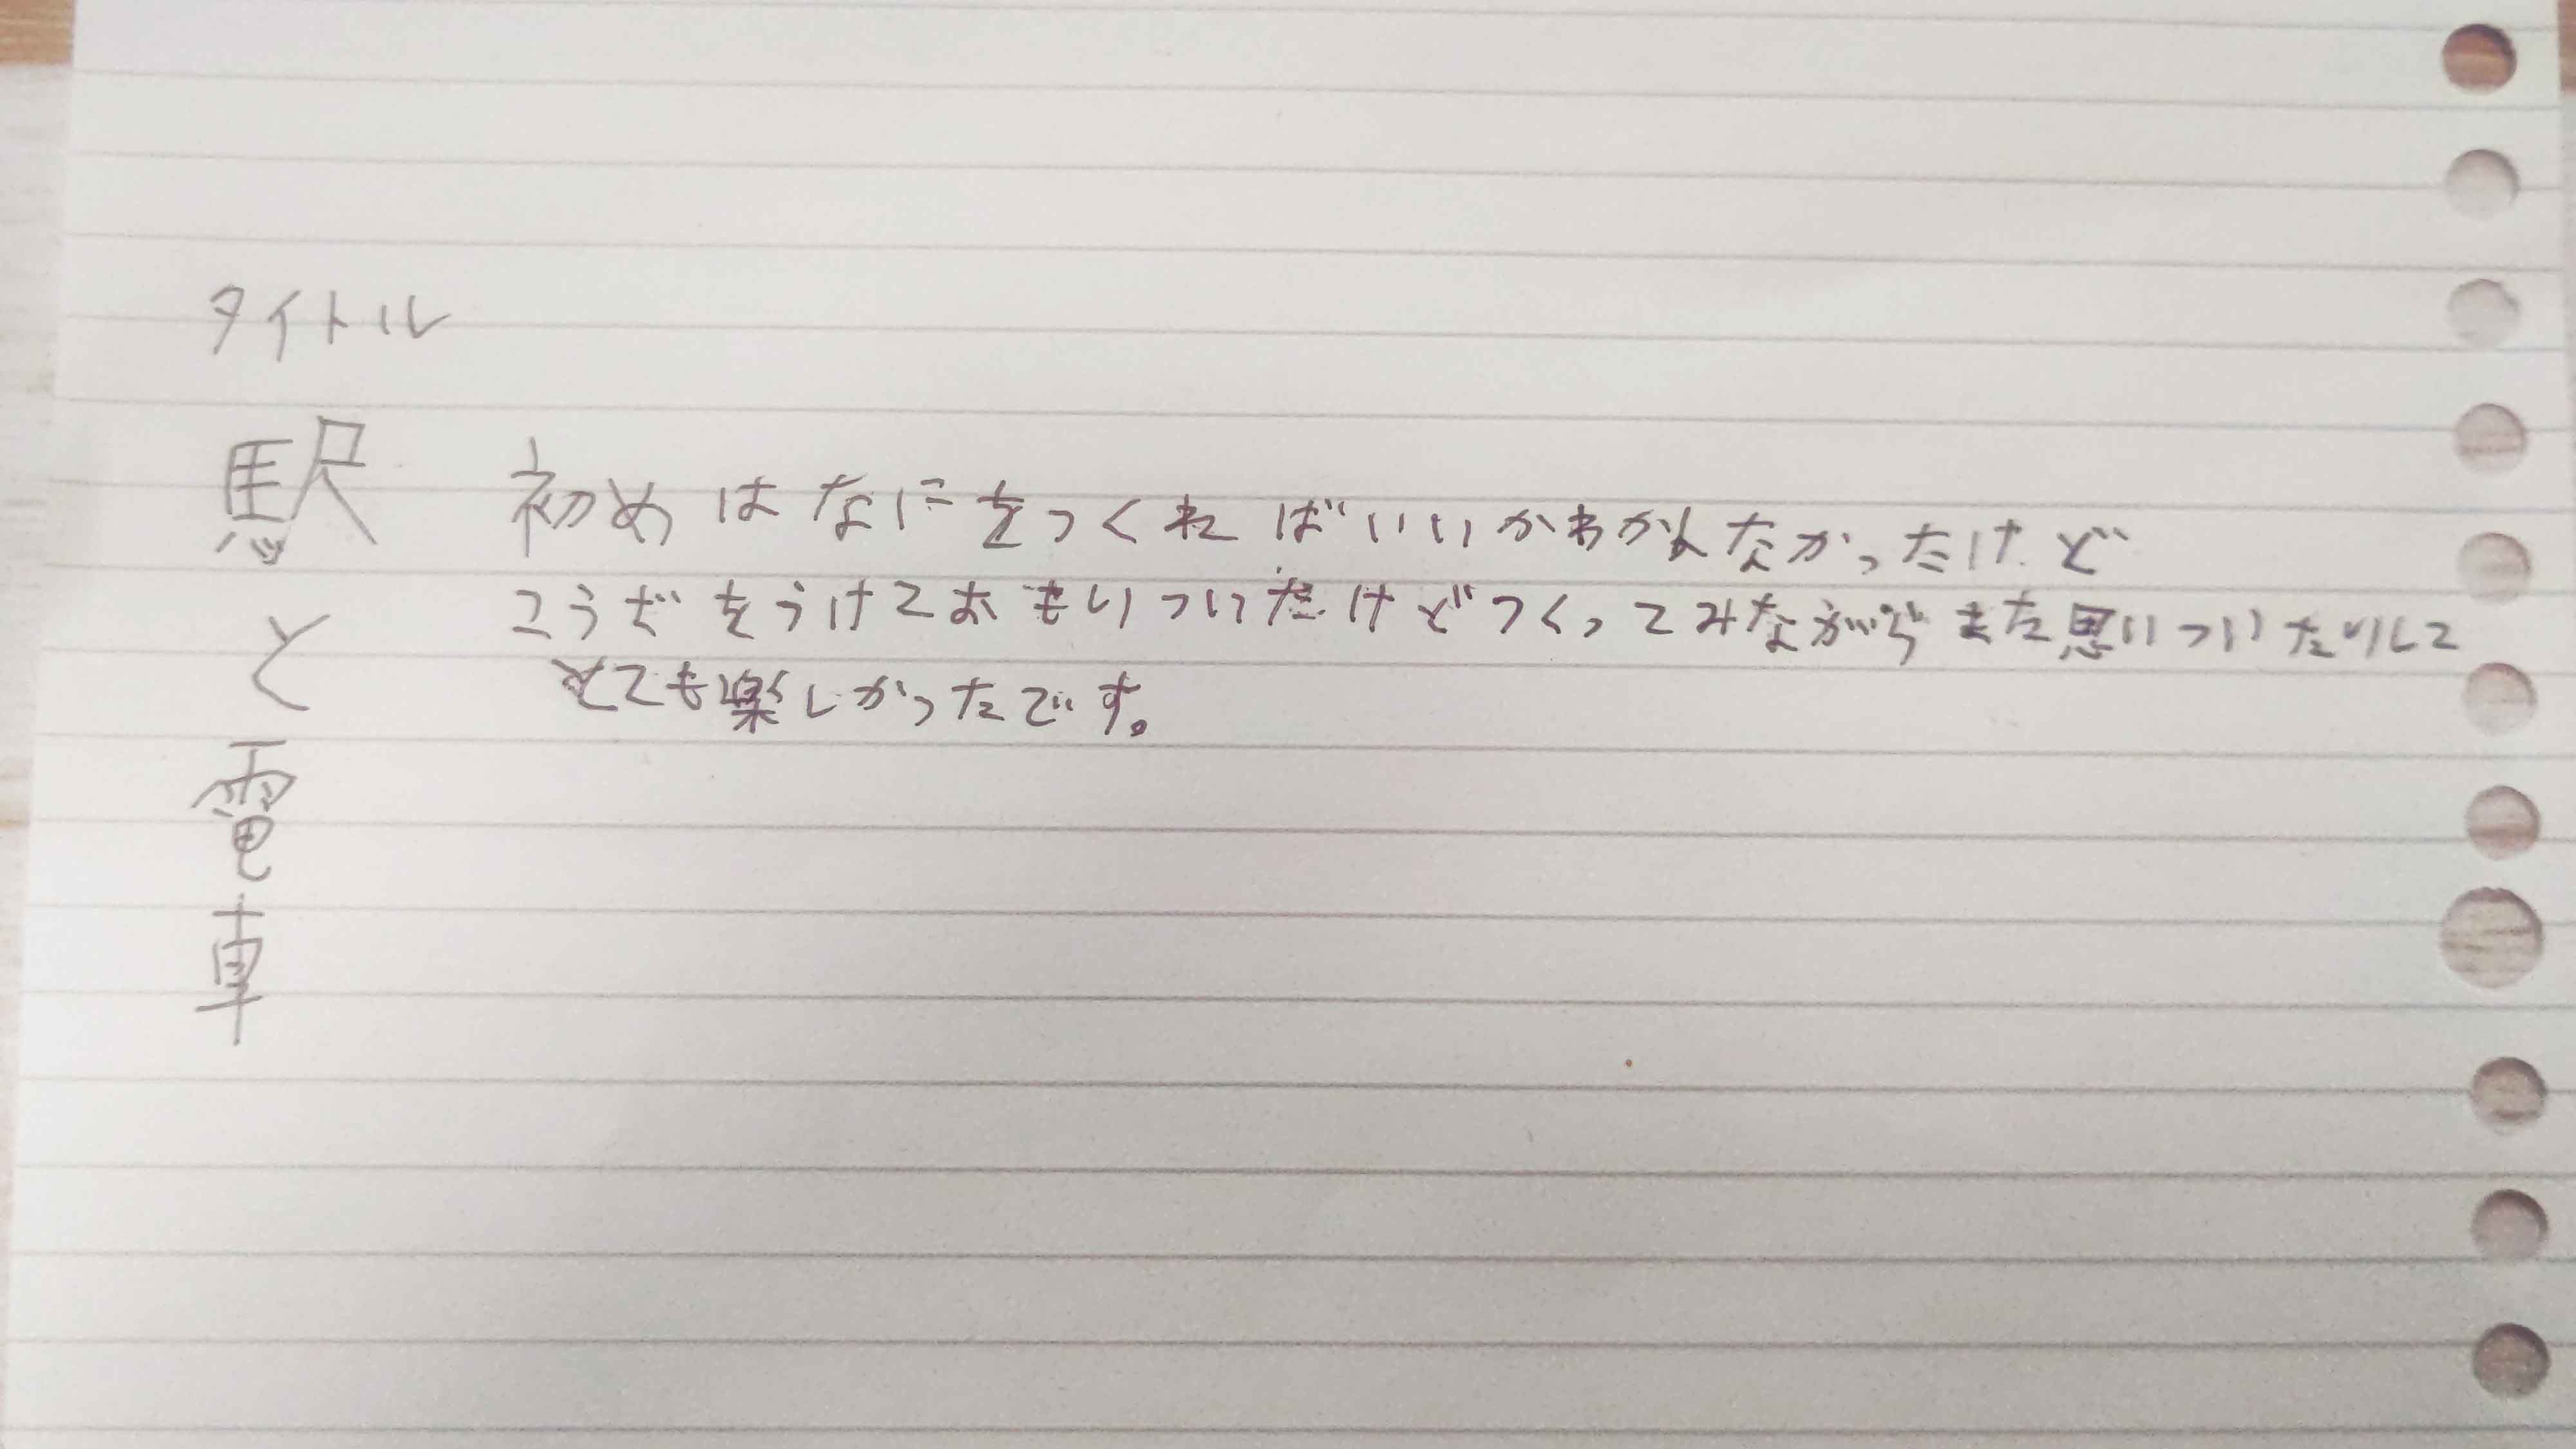 タイトル
駅と電車
初めはなにをつくればいいかわかんなかったけど
こうざをうけておもいついたけどつくってみながらまた思いついたりして
とても楽しかったです。